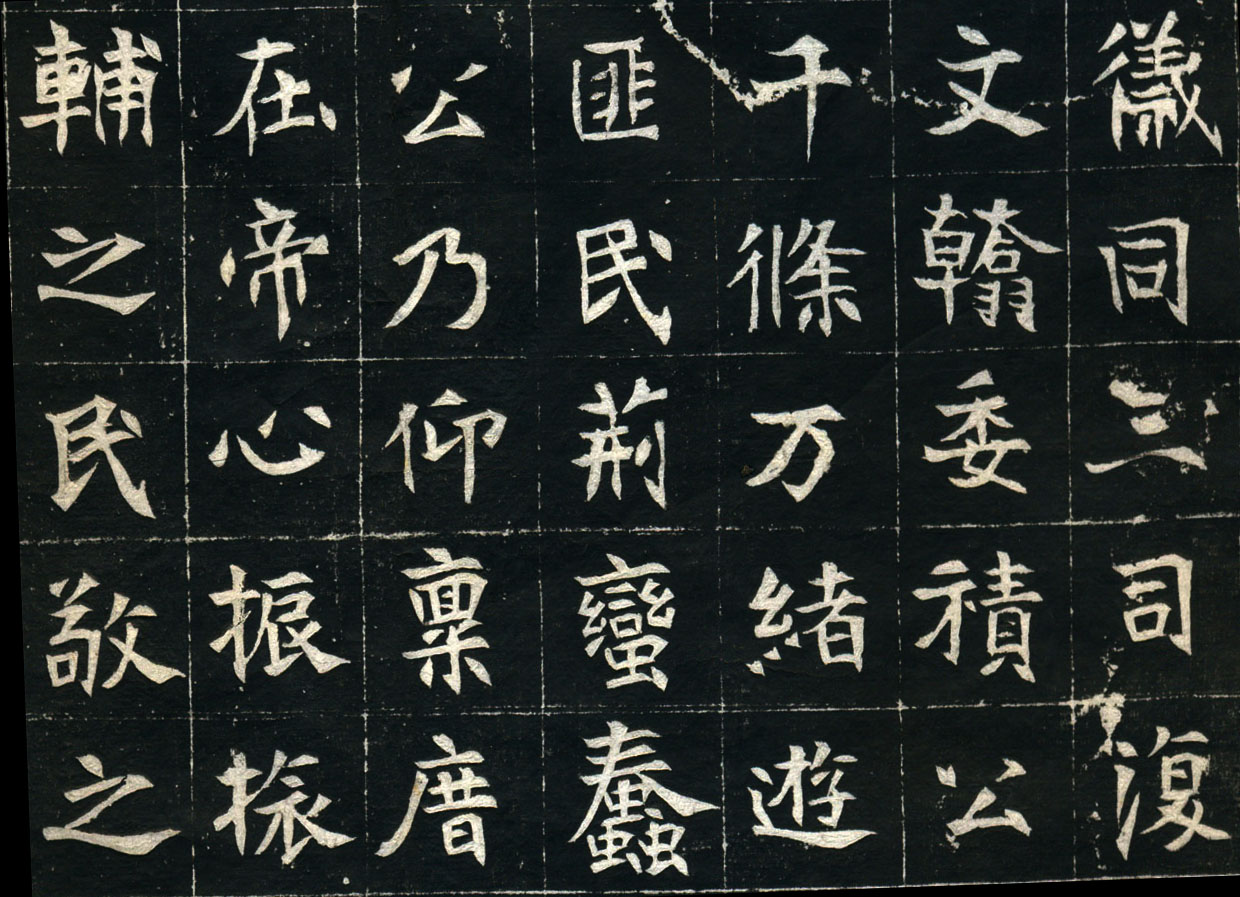 儀同三司復
文翰委積公
千條万緒遊
匪民荊蠻蠢
公乃仰稟庴
在帝心振振
輔之民敬之